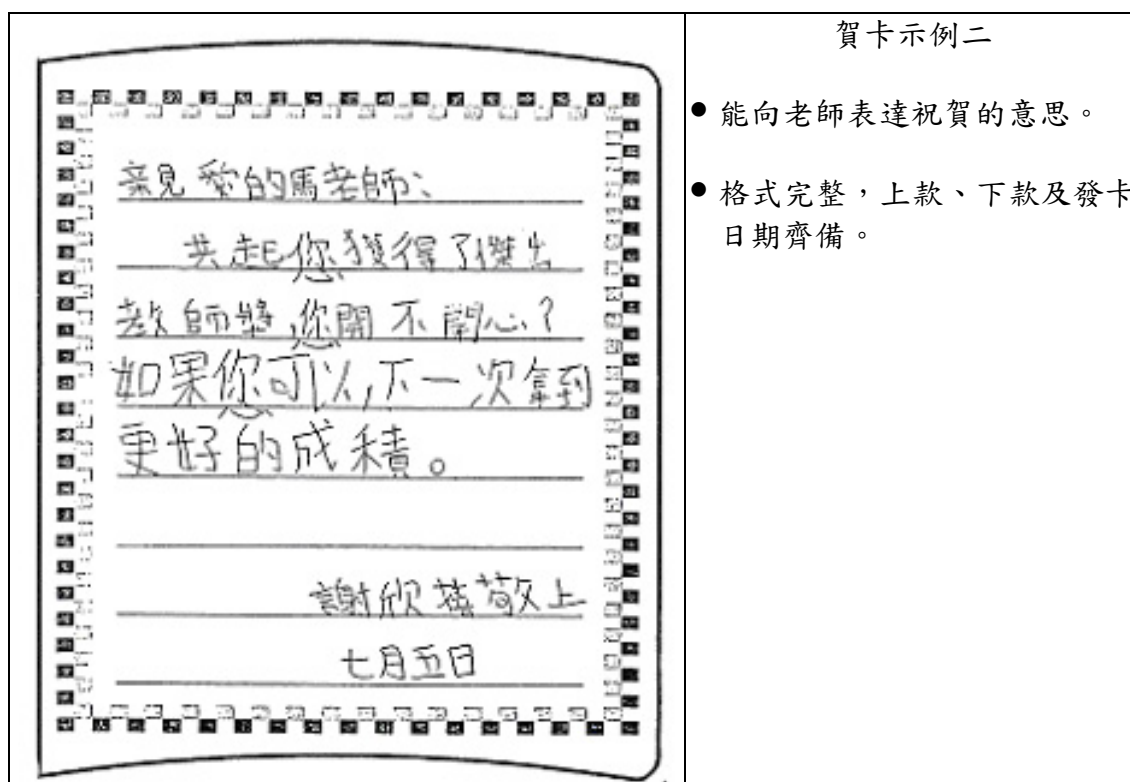 親愛的馬老師:
共起您獲得了傑出
教師獎,您開不開心?
如果您可以,下一次拿到
更好的成積。
謝欣敬上
七月五日
賀卡示例二
● 能向老師表達祝賀的意思。
● 格式完整,上款、下款及發卡
日期齊備。